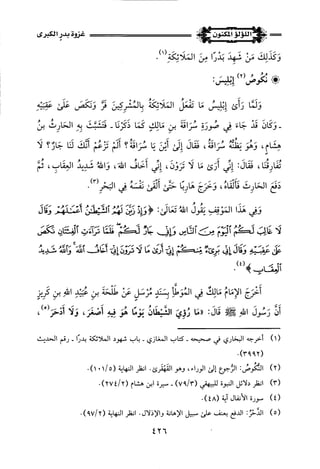 اللؤلؤ المكنون
غزوة بدر الكبرى
وَكَذَلِكَ مَنْ شَهِدَ بَدْرًا مِنَ المَلَائِكَةِ (١).
نُكُوصُ (٢) إِبْلِيسَ:
وَلَمَّا رَأَى إِبْلِيسُ مَا تَفْعَلُ المَلَائِكَةُ بِالمُشْرِكِينَ فَرَّ وَنَكَصَ عَلَى عَقِبَيْهِ
ـ وَكَانَ قَدْ جَاءَ فِي صُورَةِ سُرَاقَةَ بنِ مَالِكٍ كَمَا ذَكَرْنَا ـ فَتَشَبَّثَ بِهِ الحَارِثُ بنُ
هِشَامٍ، وَهُوَ يَظُنُّهُ سُرَاقَةَ، فَقَالَ إِلَى أَيْنَ يَا سُرَاقَةُ؟ أَلَمْ تَزْعُمْ أَنَّكَ لَنَا جَارٌ؟ لَا
تُفَارِقُنَا، فَقَالَ: إِنِّي أَرَى مَا لَا تَرَوْنَ، إِنِّي أَخَافُ اللهَ، وَاللهُ شَدِيدُ العِقَابِ، ثُمَّ
دَفَعَ الحَارِثَ فَأَلْقَاهُ، وَخَرَجَ هَارِبًا حَتَّى أَلْقَى نَفْسَهُ فِي البَحْرِ (٣).
وَفِي هَذَا المَوْقِفِ يَقُولُ اللهُ تَعَالَى: ﴿وَإِذْ زَيَّنَ لَهُمُ الشَّيْطَانُ أَعْمَالَهُمْ وَقَالَ
لَا غَالِبَ لَكُمُ الْيَوْمَ مِنَ النَّاسِ وَإِنِّي جَارٌ لَكُمْ فَلَمَّا تَرَاءَتِ الْفِئَتَانِ نَكَصَ
عَلَى عَقِبَيْهِ وَقَالَ إِنِّي بَرِيءٌ مِنْكُمْ إِنِّي أَرَى مَا لَا تَرَوْنَ إِنِّي أَخَافُ اللهَ وَاللهُ شَدِيدُ
الْعِقَابِ﴾ (٤).
أَخْرَجَ الإِمَامُ مَالِكٌ فِي المُوَطَّأِ بِسَنَدٍ مُرْسَلٍ عَنْ طَلْحَةَ بنِ عُبَيْدِ اللهِ بنِ كَرِيزٍ
أَنَّ رَسُولَ اللهِ ﷺ قَالَ: «مَا رُؤِيَ الشَّيْطَانُ يَوْمًا هُوَ فِيهِ أَصْغَرُ، وَلَا أَدْحَرُ (٥)،
(١) أخرجه البخاري في صحيحه ـ كتاب المغازي ـ باب شهود الملائكة بدرًا ـ رقم الحديث
(٣٩٩٢).
(٢) النُّكُوصُ: الرُّجوع إلى الوراء، وهو القَهْقَرى. انظر النهاية (١٠١/٥).
(٣) انظر دلائل النبوة للبيهقي (٧٩/٣) ـ سيرة ابن هشام (٢٧٤/٢).
(٤) سورة الأنفال آية (٤٨).
(٥) الدَّحْرُ: الدفع بعنف على سبيل الإهانة والإذلال. انظر النهاية (٩٧/٢).
٤٢٦